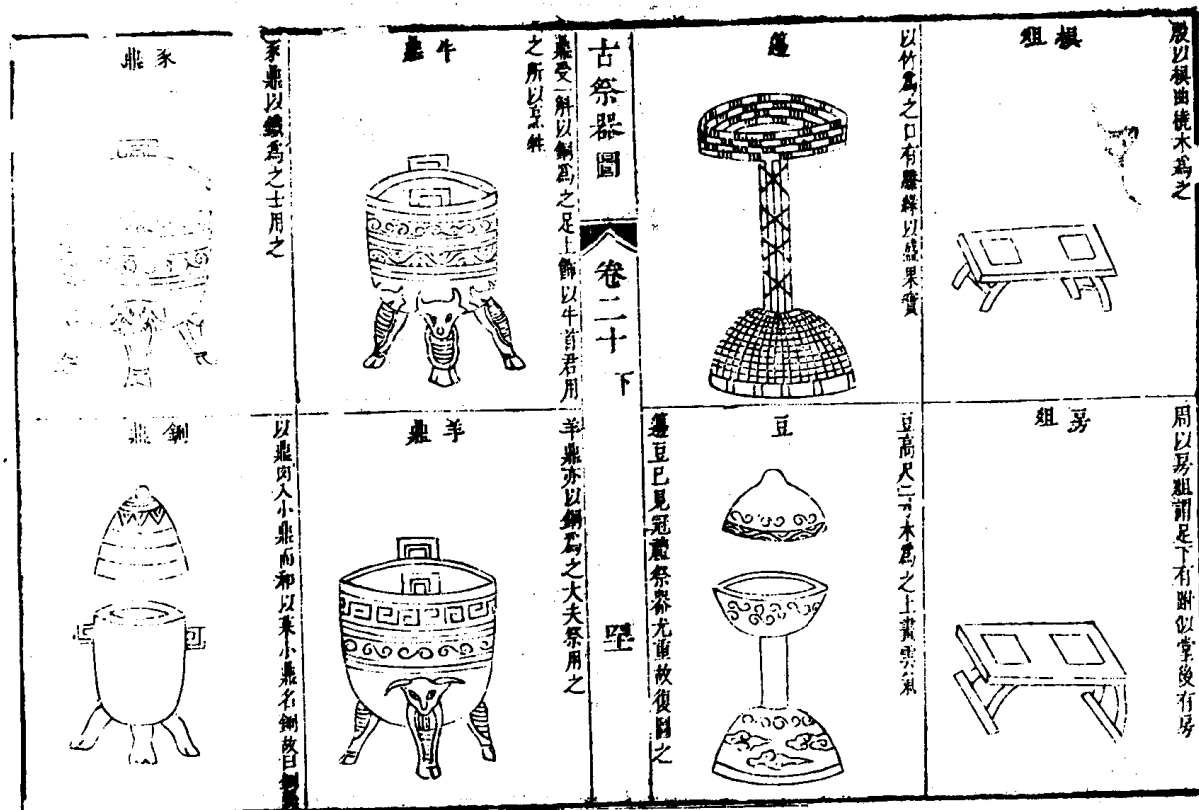 椇俎
殷以椇曲橈木為之
房俎
周以房俎謂足下有跗似堂後有房
籩
以竹為之口有籐緣以盛果實
豆
豆高尺二寸木為之上畫雲氣
籩豆已見冠禮祭器尤重故復圖之
古祭器圖
卷二十下
牛鼎
鼎受一斛以銅為之足上飾以牛首君用
之所以烹牲
羊鼎
羊鼎亦以銅為之大夫祭用之
豕鼎
豕鼎以鐵為之士用之
鉶鼎
以鼎肉入小鼎而和以菜小鼎名鉶故曰鉶鼎